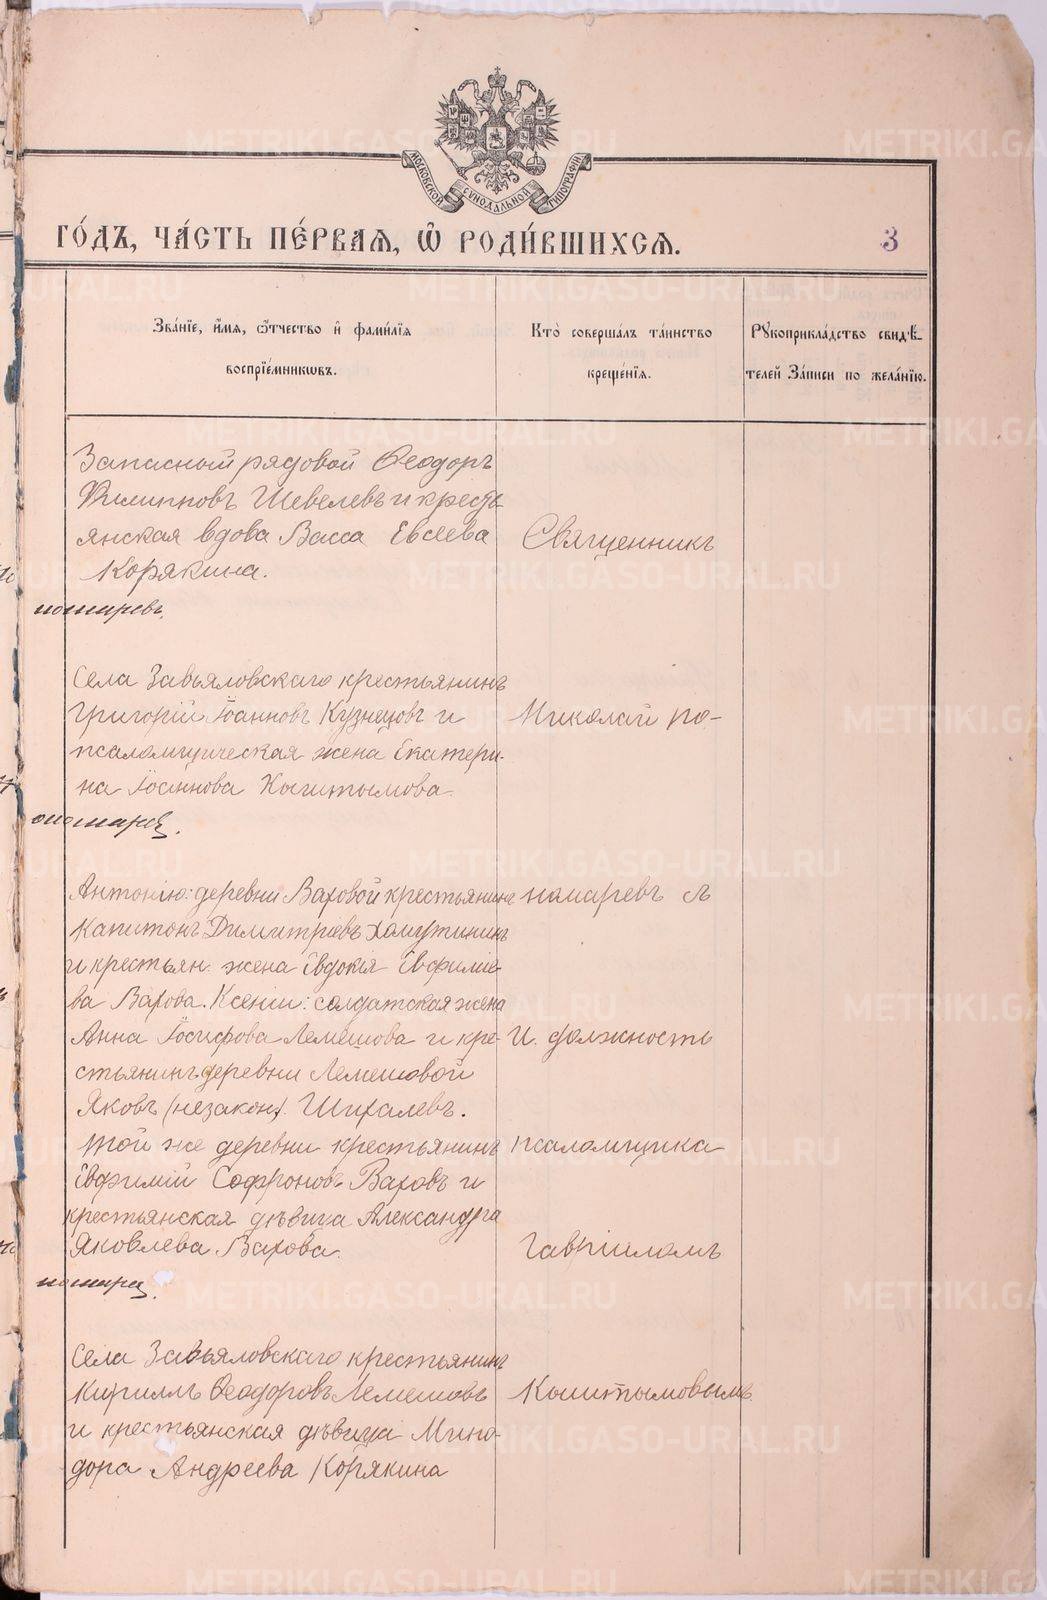 МОСКОВСКОЙ СѴНОДАЛЬНОЙ ТИПОГРАФІИ
ГО́ДЪ, ЧА́СТЬ ПЕ́РВАѦ, Ѡ҆ РОДИ́ВШИХСѦ.
3
Зва́нїе, и҆́мѧ, ѻ҆́тчество и҆ фами́лїѧ
воспрїе́мникѡвъ.
Кто̀ соверша́лъ та́инство
креще́нїѧ.
Рꙋкоприкла́дство свидѣ́-
телей За́писи по жела́нїю.
Запасный рядовой Ѳеодоръ
Филипповъ Шевелевъ и кресть
янская вдова Васса Евсеева
Корякина.
Священникъ
помиревъ.
Села Завьяловскаго крестьянинъ
Григорій Іоанновъ Кузнецовъ и
псаломщическая жена Екатери-
на Іоаннова Кошитымова
Николай По-
Антонію: деревни Ваховой крестьянинъ
Капитонъ Димитріевъ Хомутининъ
и крестьян. жена Евдокія Евфиміе-
ва Вахова. Ксеніи: солдатская жена
Анна Іосифова Лемешова и кре-
стьянинъ деревни Лемешовой
Яковъ (незакон). Шихалевъ.
номаревъ съ
И. должность
той же деревни крестьянинъ
Евфимій Софроновъ Ваховъ и
крестьянская дѣвица Александра
Яковлева Вахова
псаломщика
Гавріиломъ
Села Завьяловскаго крестьянинъ
Кириллъ Ѳеодоровъ Лемешовъ
и крестьянская дѣвица Мино-
дора Андреева Корякина
Кошитымовымъ
METRIKI.GASO-URAL.RU